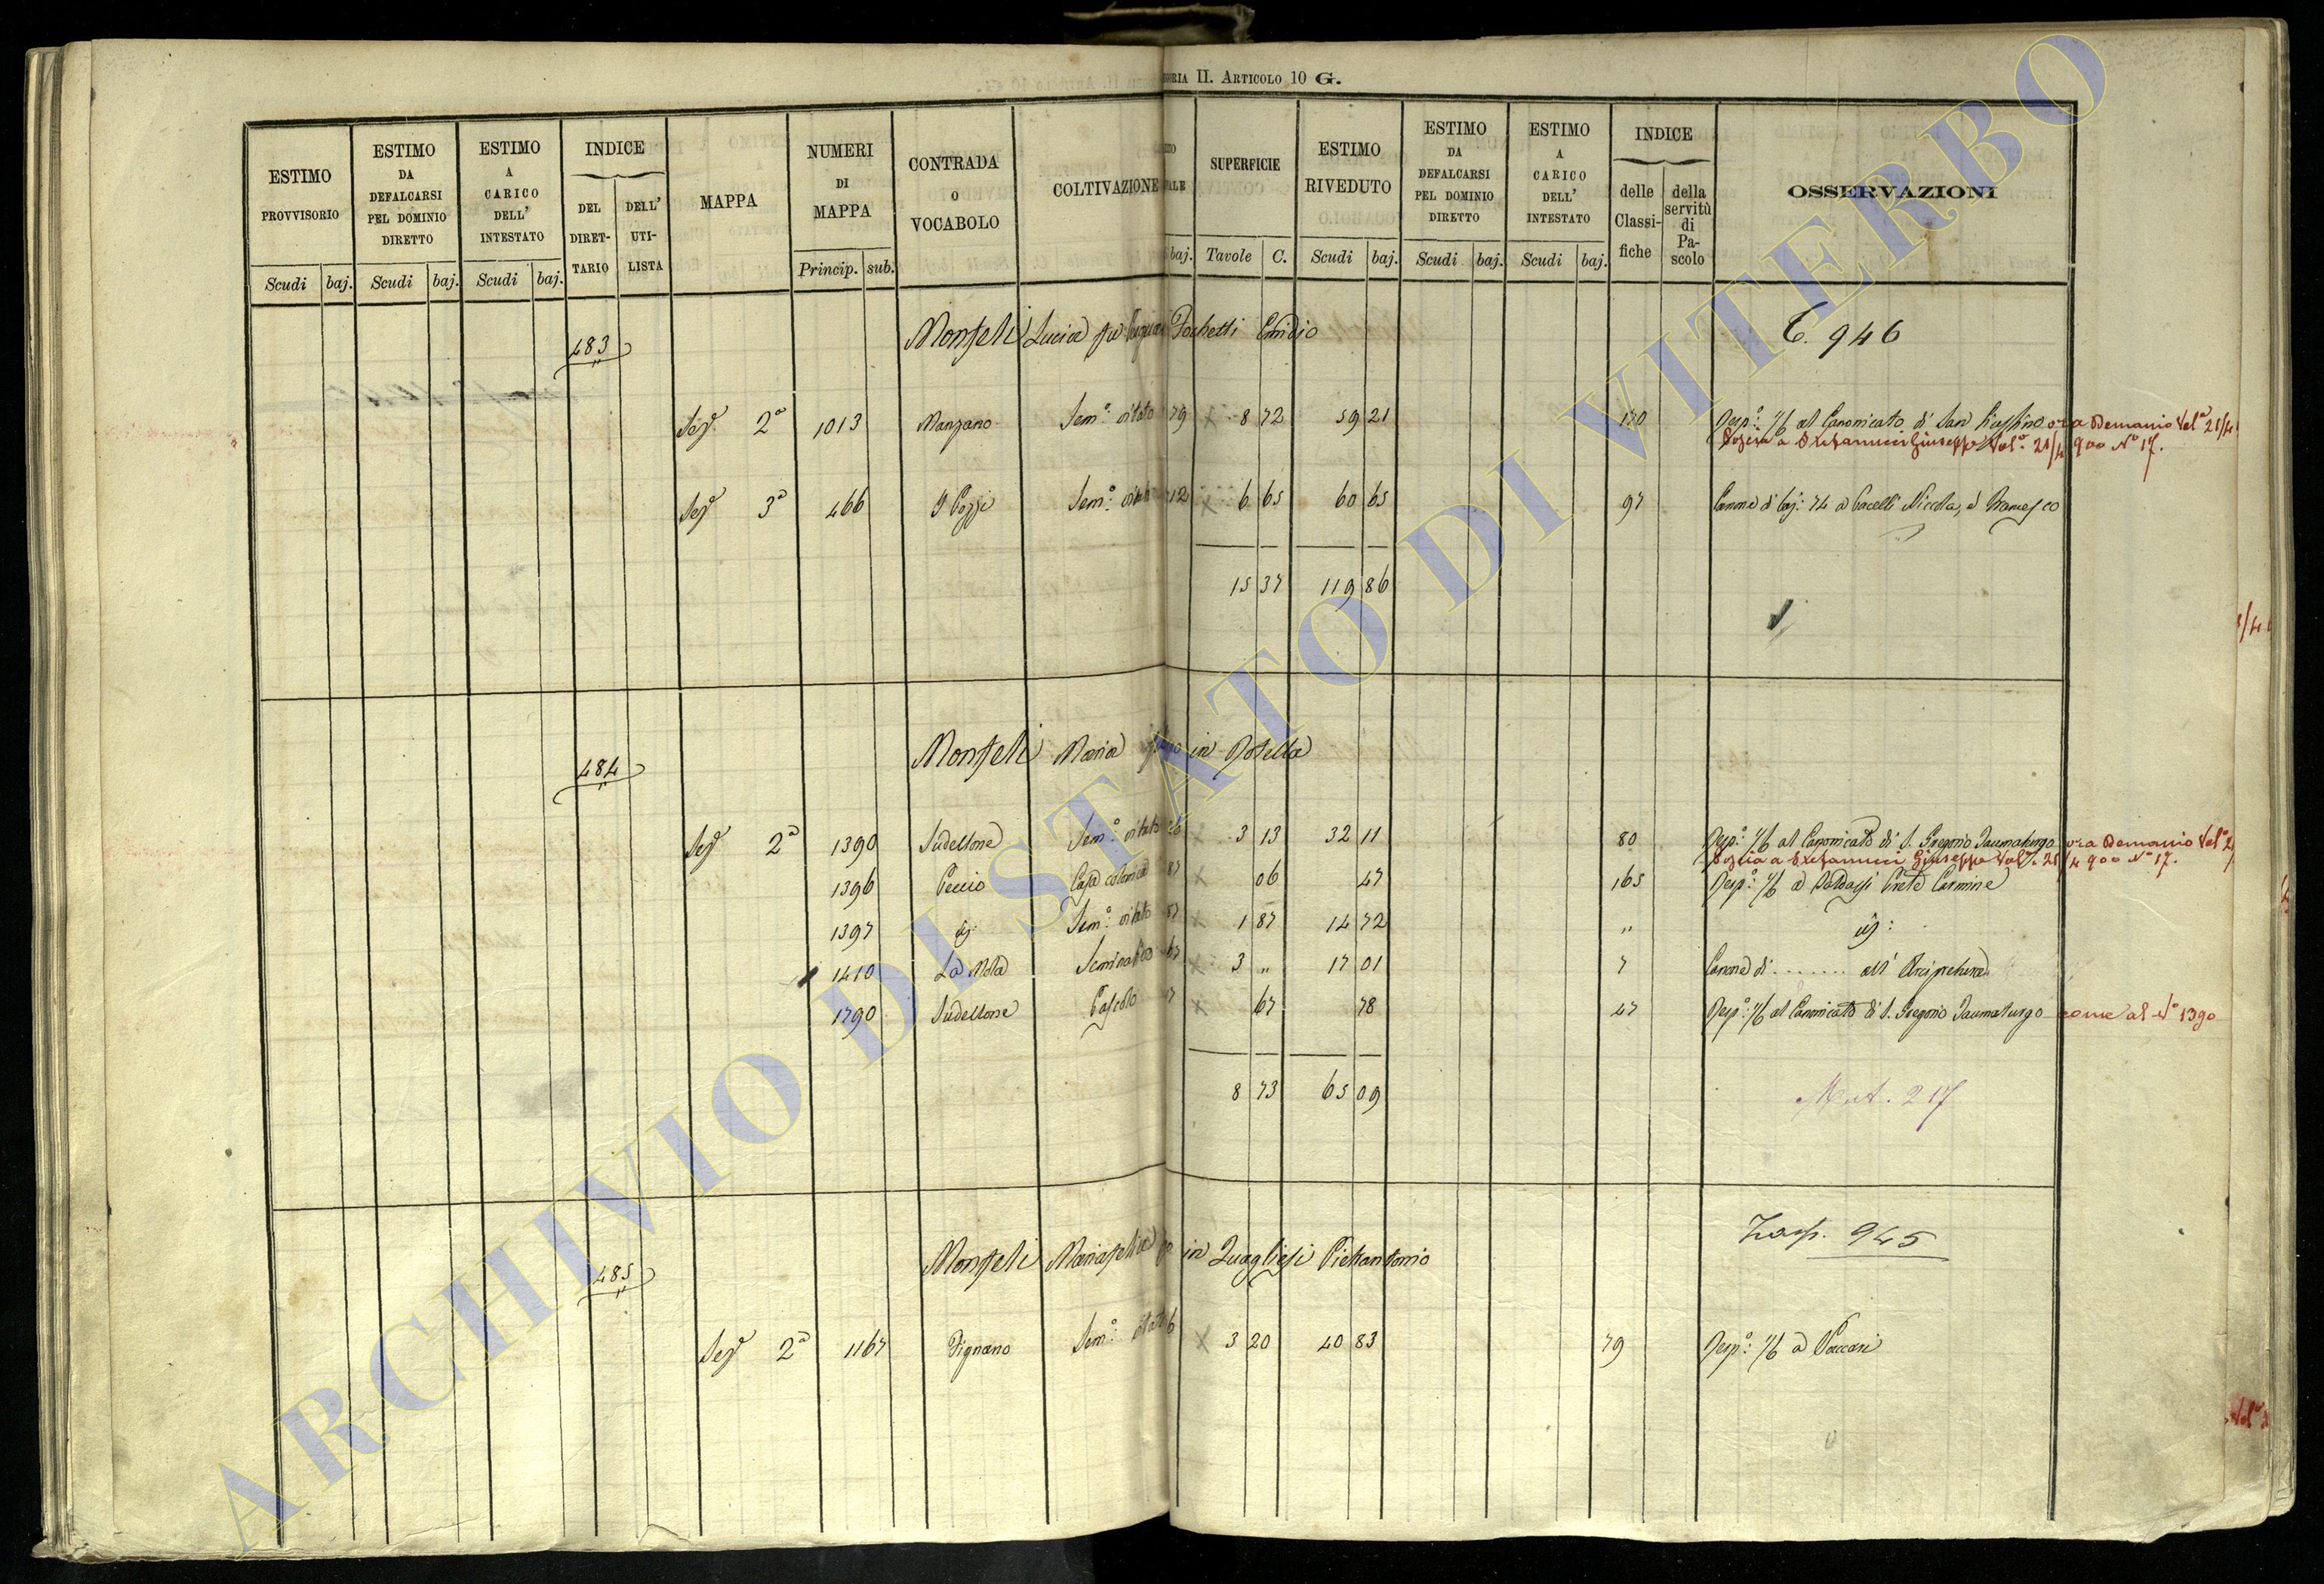 ORIA II. ARTICOLO 10 G.
ESTIMO PROVVISORIO Scudi baj.
ESTIMO DA DEFALCARSI PEL DOMINIO DIRETTO Scudi baj.
ESTIMO A CARICO DELL' INTESTATO Scudi baj.
INDICE DEL DIRET-TARIO DELL' UTI-LISTA
MAPPA
NUMERI DI MAPPA Princip. sub.
CONTRADA O VOCABOLO
COLTIVAZIONE
ALE baj.
SUPERFICIE Tavole C.
ESTIMO RIVEDUTO Scudi baj.
ESTIMO DA DEFALCARSI PEL DOMINIO DIRETTO Scudi baj.
ESTIMO A CARICO DELL' INTESTATO Scudi baj.
INDICE delle Classi-fiche della servitù di Pa-scolo
OSSERVAZIONI
483 Monfeli Lucia Pochetti Emidio T. 946
Sez 2ª 1013 Manzano Sem.º vitato 79 8 72 59 21 170 Resp.º 1/6 al Canonicato di San ora Demanio Vol.ª 21/4
a Giuseppe Vol.ª 21/4 900 Nº 17.
Sez 3ª 466 I Pozzi Sem.º vitato 12 6 65 60 65 97 Canone di baj: 74 a Pacelli Nicola, e Francesco
15 37 119 86
484 Monfeli Maria in Rosella
Sez 2ª 1390 Sudellone Sem.º vitato 3 13 32 11 80 Resp.º 1/6 al Canonicato di S. Gregorio Taumaturgo ora Demanio Vol.ª 2
a Giuseppe Vol.ª 21/4 900 Nº 17.
1396 Peccio Casa colonica 87 06 47 165 Resp.º 1/6 a Baldassi Prete Carmine
1397 id: Sem.º vitato 87 1 87 14 72 " id:
1410 La Mola Seminativo 67 3 " 17 01 7 Canone di ........ all' Arcipretura
1790 Sudellone Pascolo 7 67 78 47 Resp.º 1/6 al Canonicato di S. Gregorio Taumaturgo come al Nº 1390
8 73 65 09
Mut. 217
485 Monfeli in Quagliesi Pietrantonio Trasp. 945
Sez 2ª 1167 Pignano Sem.º vitato 6 3 20 40 83 79 Resp.º 1/6 a Vaccari
ARCHIVIO DI STATO DI VITERBO